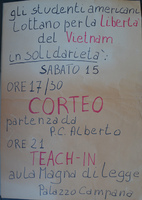 gli studenti americani
lottano per la libertà
del Vietnam
in solidarietà:
SABATO 15
ORE 17/30
CORTEO
partenza da
P.C. Alberto
ORE 21
TEACH-IN
aula Magna di Legge
Palazzo Campana